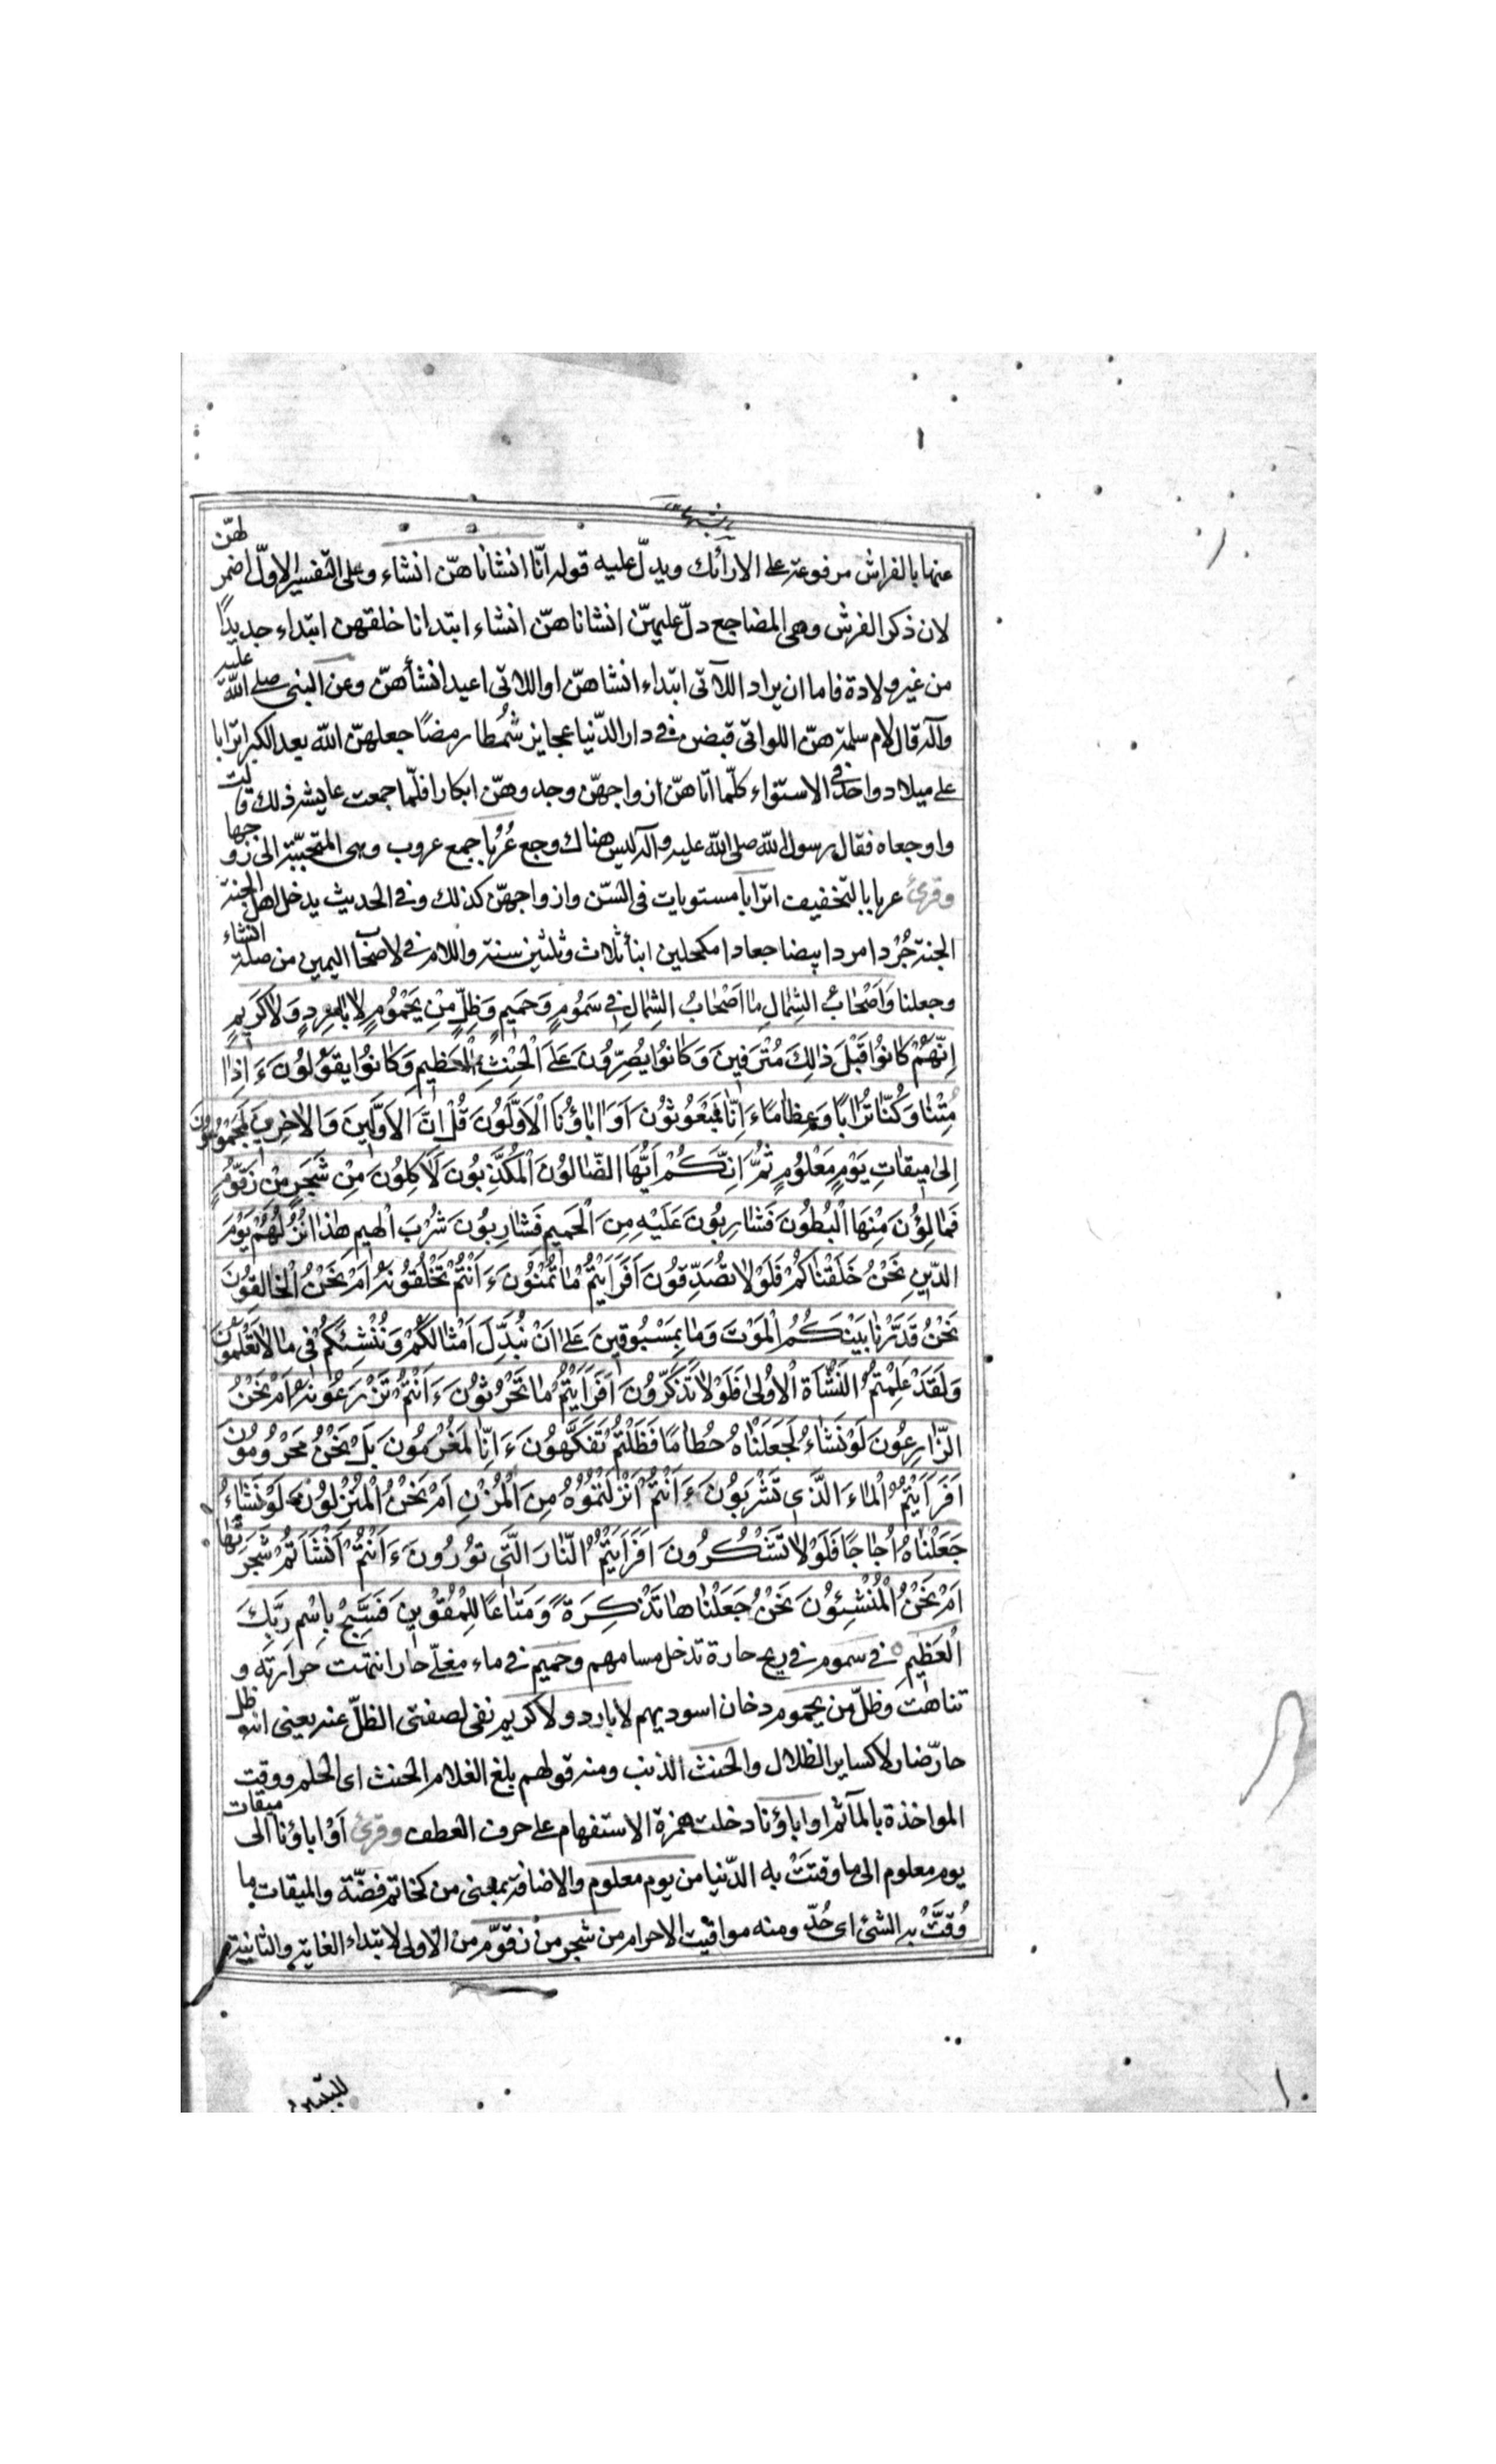 عنها بالفراش مرفوعة على الارائك ويدلّ عليه قوله انّا انشاناهنّ انشاء وعلى التفسير الاوّل اضمر لهنّ
لان ذكر الفرش وهى المضاجع دلّ عليهنّ انشاناهنّ انشاء ابتدانا خلقهن ابتداء جديدًا
من غير ولادة فاما ان يراد اللآتى ابتداء انشاهنّ او اللاتى اعيد انشأهنّ وعن النبى صلى الله عليه
وآله قال لام سلمة هنّ اللواتى قبضن فى دار الدّنيا عجايز شُمطا رمضًا جعلهنّ الله بعد الكبر اترابا
على ميلاد واحد فى الاستواء كلّما اتاهنّ ازواجهنّ وجدوهنّ ابكارا فلمّا سمعت عايشه ذلك قالت
واوجعاه فقال رسول الله صلى الله عليه وآله ليس هناك وجع عُرُبًا جمع عروب وهى المتحبّبة الى زوجها
وقرئ عربا بالتخفيف اترابا مستويات فى السّن وازواجهنّ كذلك وفى الحديث يدخل اهل الجنة
الجنة جُرْدا مردا بيضا جعادا مكحلين ابنأ ثلاث وثلثين سنة واللام فى لاصحاب اليمين من صلة انشاء
وجعلنا وَاَصْحابُ الشِمٰالِ مٰا اَصْحٰابُ الشِمٰالِ فِى سَمُومٍ وَحَمِيمٍ وَظِلٍّ مِنْ يَحْمُومٍ لاٰ بٰارِدٍ وَلاٰ كَرِيمٍ
اِنَّهُمْ كٰانُوا قَبْلَ ذٰلِكَ مُتْرَفِينَ وَكٰانُوا يُصِرُّونَ عَلَى الْحِنْثِ الْعَظِيمِ وَكٰانُوا يَقُولُونَ ءَاِذٰا
مِتْنٰا وَكُنّٰا تُرٰابًا وَعِظٰامًا ءَاِنّٰا لَمَبْعُوثُونَ اَوَ اٰبٰاؤُنَا الْاَوَّلُونَ قُلْ اِنَّ الْاَوَّلِينَ وَالْاٰخِرِينَ لَمَجْمُوعُونَ
اِلىٰ مِيقٰاتِ يَوْمٍ مَعْلُومٍ ثُمَّ اِنَّكُمْ اَيُّهَا الضّٰالُونَ الْمُكَذِّبُونَ لَاٰكِلُونَ مِنْ شَجَرٍ مِنْ زَقُّومٍ
فَمٰالِؤُنَ مِنْهَا الْبُطُونَ فَشٰارِبُونَ عَلَيْهِ مِنَ الْحَمِيمِ فَشٰارِبُونَ شُرْبَ الْهِيمِ هٰذٰا نُزُلُهُمْ يَوْمَ
الدِّينِ نَحْنُ خَلَقْنٰاكُمْ فَلَوْلاٰ تُصَدِّقُونَ اَفَرَاَيْتُمْ مٰا تُمْنُونَ ءَاَنْتُمْ تَخْلُقُونَهُ اَمْ نَحْنُ الْخٰالِقُونَ
نَحْنُ قَدَّرْنٰا بَيْنَكُمُ الْمَوْتَ وَمٰا بِمَسْبُوقِينَ عَلىٰ اَنْ نُبَدِّلَ اَمْثٰالَكُمْ وَنُنْشِئَكُمْ فِى مٰا لاٰ تَعْلَمُونَ
وَلَقَدْ عَلِمْتُمُ النَّشْاَةَ الْاُولىٰ فَلَوْلاٰ تَذَكَّرُونَ اَفَرَاَيْتُمْ مٰا تَحْرُثُونَ ءَاَنْتُمْ تَزْرَعُونَهُ اَمْ نَحْنُ
الزّٰارِعُونَ لَوْ نَشٰاءُ لَجَعَلْنٰاهُ حُطٰامًا فَظَلْتُمْ تَفَكَّهُونَ ءَاِنّٰا لَمَغْرَمُونَ بَلْ نَحْنُ مَحْرُومُونَ
اَفَرَاَيْتُمُ الْمٰاءَ الَّذِى تَشْرَبُونَ ءَاَنْتُمْ اَنْزَلْتُمُوهُ مِنَ الْمُزْنِ اَمْ نَحْنُ الْمُنْزِلُونَ لَوْ نَشٰاءُ
جَعَلْنٰاهُ اُجٰاجًا فَلَوْلاٰ تَشْكُرُونَ اَفَرَاَيْتُمُ النّٰارَ الَّتِى تُورُونَ ءَاَنْتُمْ اَنْشَاْتُمْ شَجَرَتَهٰا
اَمْ نَحْنُ الْمُنْشِئُونَ نَحْنُ جَعَلْنٰاهٰا تَذْكِرَةً وَمَتٰاعًا لِلْمُقْوِينَ فَسَبِّحْ بِاسْمِ رَبِّكَ
الْعَظِيمِ فى سموم فى ريح حارة تدخل مسامهم وحميم فى ماء مغلّى حار انتهت حرارته و
تناهت وظلّ من يحموم دخان اسود بهيم لا بارد ولا كريم نفى لصفتى الظلّ عنه يعنى انه ظل
حارّ ضار لا كساير الظلال والحنث الذنب ومنه قولهم بلغ الغلام الحنث اى الحلم ووقت
المواخذة بالمآثم او اباؤنا دخلت همزة الاستفهام على حرف العطف وقرئ اَوْ اباؤنا الى ميقات
يوم معلوم الى ما وقتتْ به الدّنيا من يوم معلوم والاضافة بمعنى من كخاتم فضّة والميقات ما
وُقِّتَ به الشئ اى حُدّ ومنه مواقيت الاحرام من شجر من زقّوم من الاولى لابتداء الغاية والثانية
للتبيين